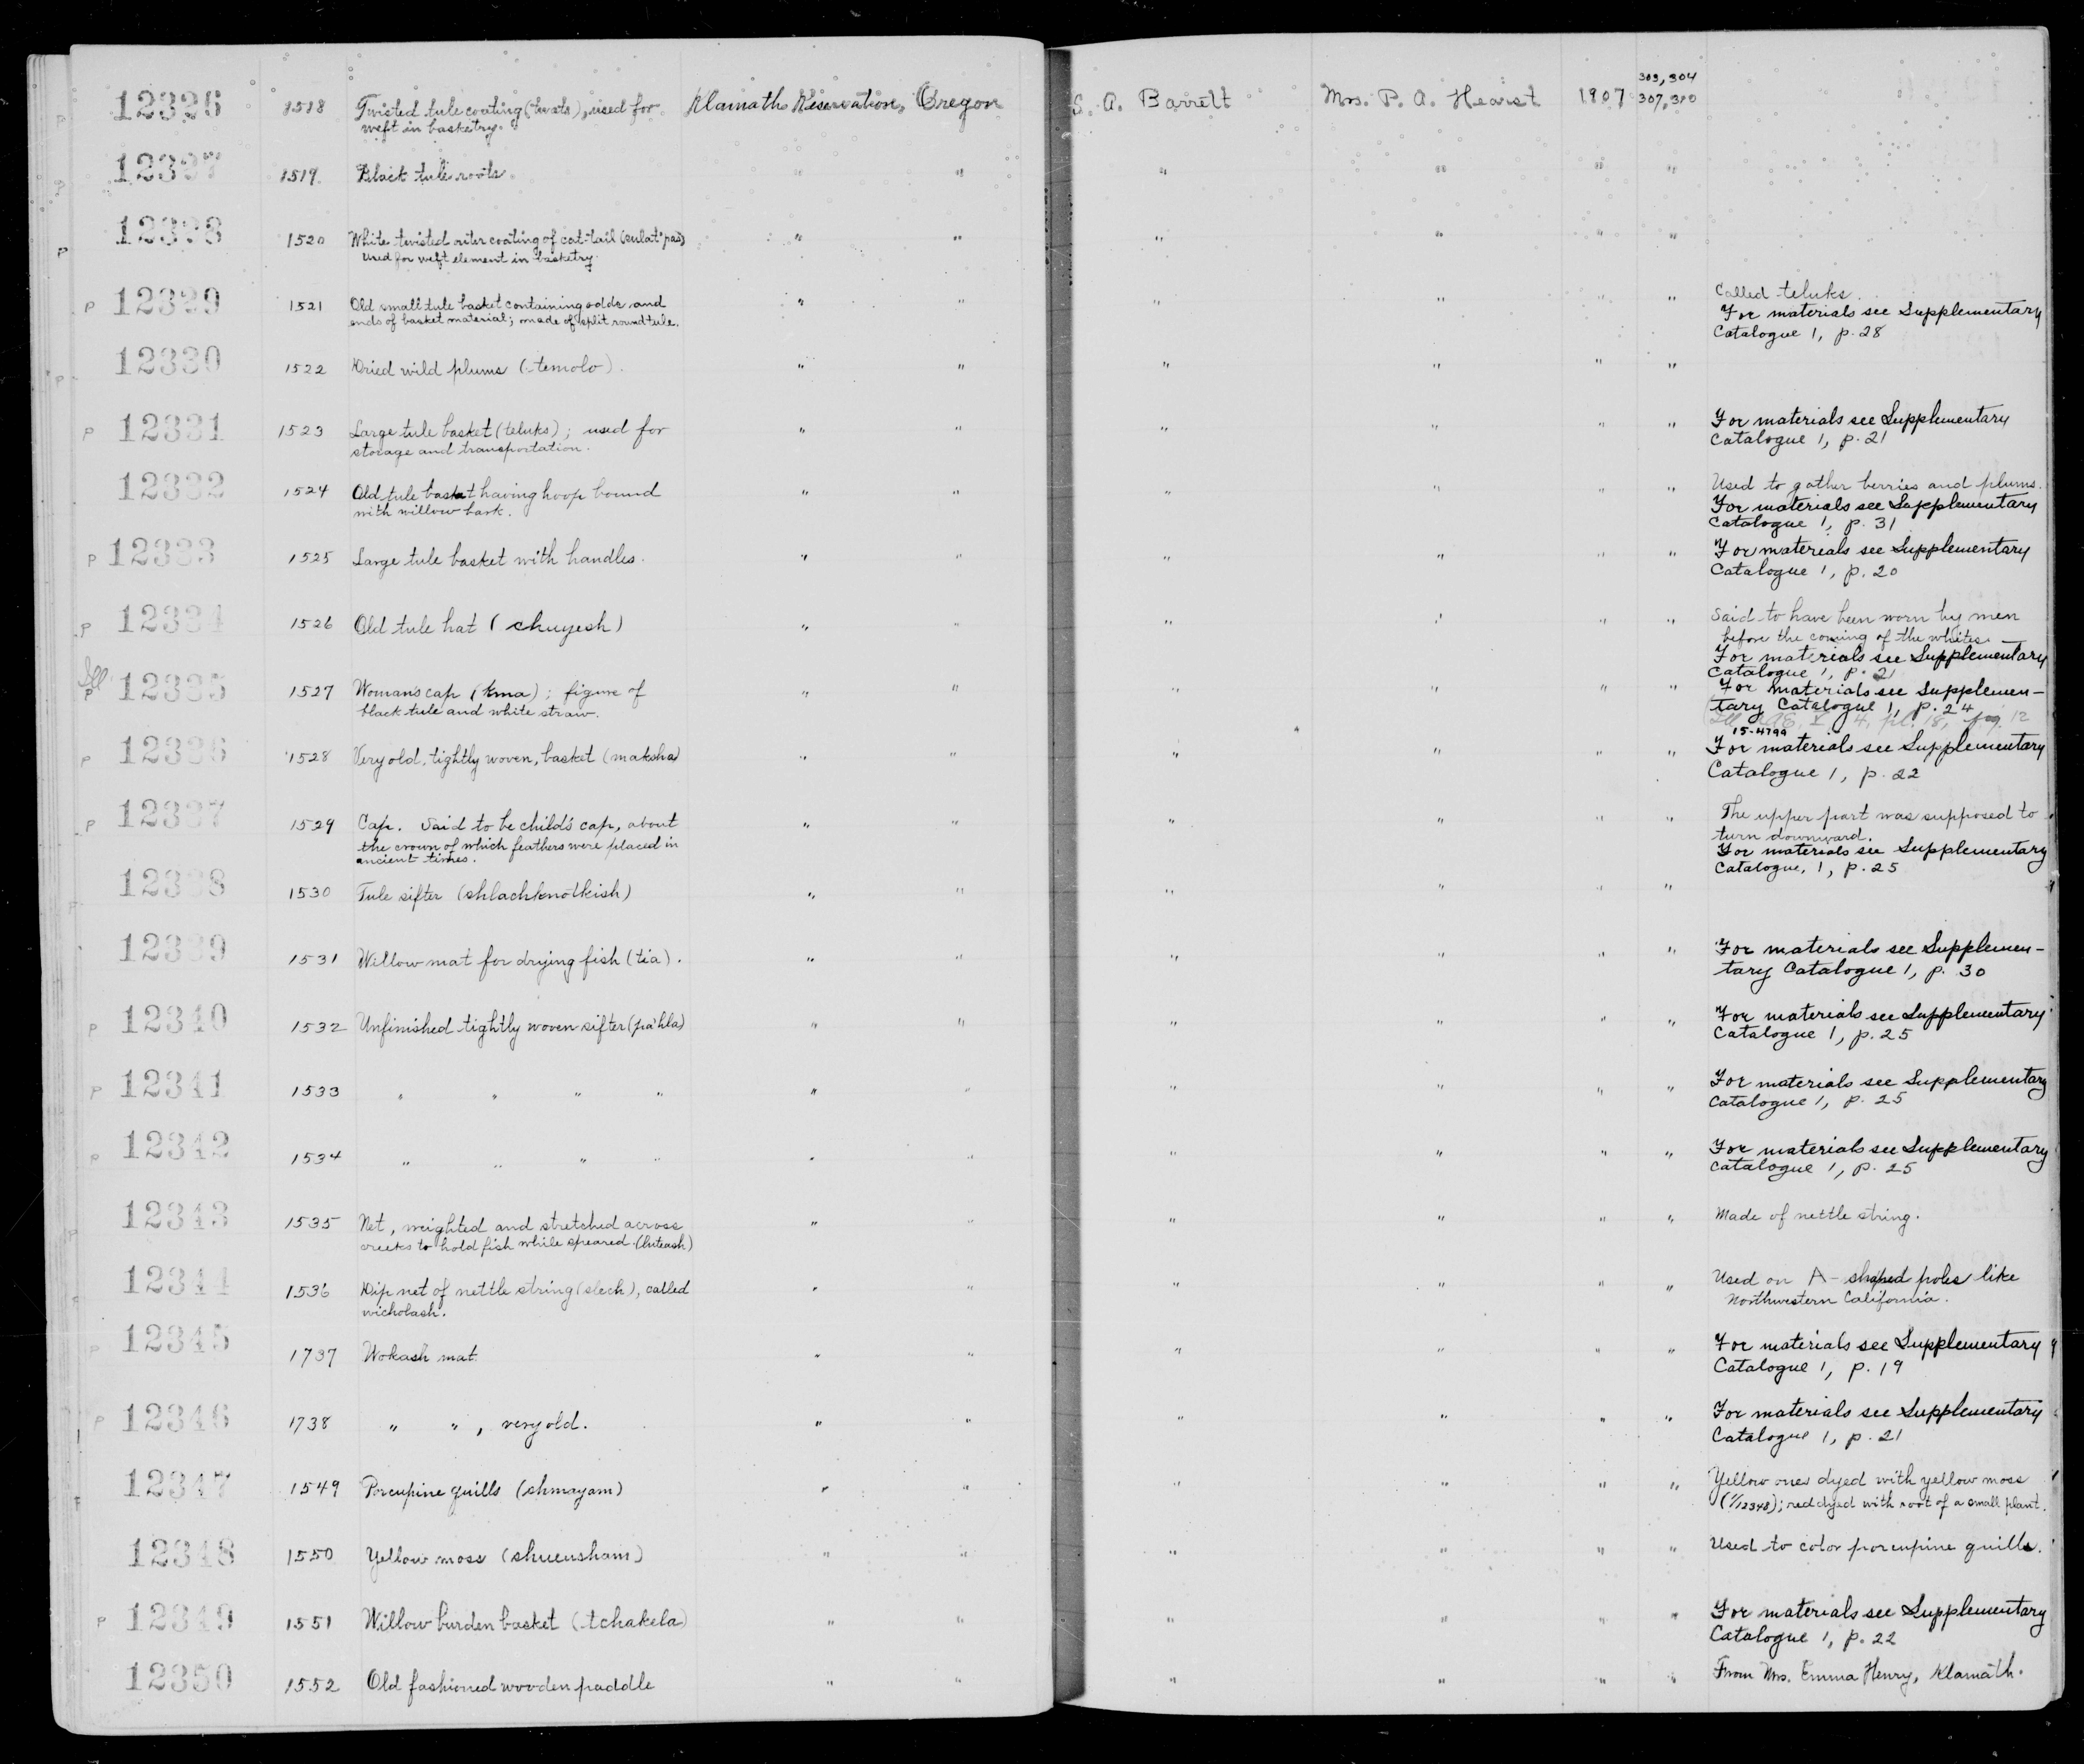 303, 304
12326 1518 Twisted tule coating (twats), used for Klamath Reservation, Oregon S. A. Barrett Mrs. P. A. Hearst 1907 307, 310
weft in basketry.
12327 1519 Black tule roots. " " " " " "
12328 1520 White twisted outer coating of cat-tail " " " " " "
Used for weft element in basketry.
P 12329 1521 Old small tule basket containing odds and " " " " " " Called teluks.
ends of basket material; made of split round tule. For materials see Supplementary
Catalogue 1, p. 28
P 12330 1522 Dried wild plums (temolo). " " " " " "
P 12331 1523 Large tule basket (teluks); used for " " " " " " For materials see Supplementary
storage and transportation. Catalogue 1, p. 21
12332 1524 Old tule basket having hoop bound " " " " " " Used to gather berries and plums.
with willow bark. For materials see Supplementary
Catalogue 1, p. 31
P 12333 1525 Large tule basket with handles. " " " " " " For materials see Supplementary
Catalogue 1, p. 20
P 12334 1526 Old tule hat (chuyesh) " " " " " " Said to have been worn by men
before the coming of the whites. —
For materials see Supplementary
Catalogue 1, p. 21
Ill
P 12335 1527 Woman's cap (kma); figure of " " " " " " For materials see Supplemen-
black tule and white straw. tary Catalogue 1, p. 24
4, pl. 18, fig. 12
15-4799
P 12336 1528 Very old, tightly woven, basket (maksha) " " " " " " For materials see Supplementary
Catalogue 1, p. 22
P 12337 1529 Cap. Said to be child's cap, about " " " " " " The upper part was supposed to
the crown of which feathers were placed in turn downward.
ancient times. For materials see Supplementary
Catalogue, 1, p. 25
12338 1530 Tule sifter (shlachknotkish) " " " " " "
12339 1531 Willow mat for drying fish (tia). " " " " " " For materials see Supplemen-
tary Catalogue 1, p. 30
P 12340 1532 Unfinished tightly woven sifter (pa'hla) " " " " " " For materials see Supplementary
Catalogue 1, p. 25
P 12341 1533 " " " " " " " " " " For materials see Supplementary
Catalogue 1, p. 25
P 12342 1534 " " " " " " " " " " For materials see Supplementary
Catalogue 1, p. 25
P 12343 1535 Net, weighted and stretched across " " " " " " Made of nettle string.
creeks to hold fish while speared. (luteash)
12344 1536 Dip net of nettle string (slech), called " " " " " " Used on A-shaped poles like
wicholash. Northwestern California.
P 12345 1737 Wokash mat. " " " " " " For materials see Supplementary
Catalogue 1, p. 19
P 12346 1738 " ", very old. " " " " " " For materials see Supplementary
Catalogue 1, p. 21
12347 1549 Porcupine quills (shmayam) " " " " " " Yellow ones dyed with yellow moss
(1/12348); red dyed with root of a small plant.
12348 1550 Yellow moss (shwensham) " " " " " " Used to color porcupine quills.
P 12349 1551 Willow burden basket (tchakela) " " " " " " For materials see Supplementary
Catalogue 1, p. 22
12350 1552 Old fashioned wooden paddle " " " " " " From Mrs. Emma Henry, Klamath.